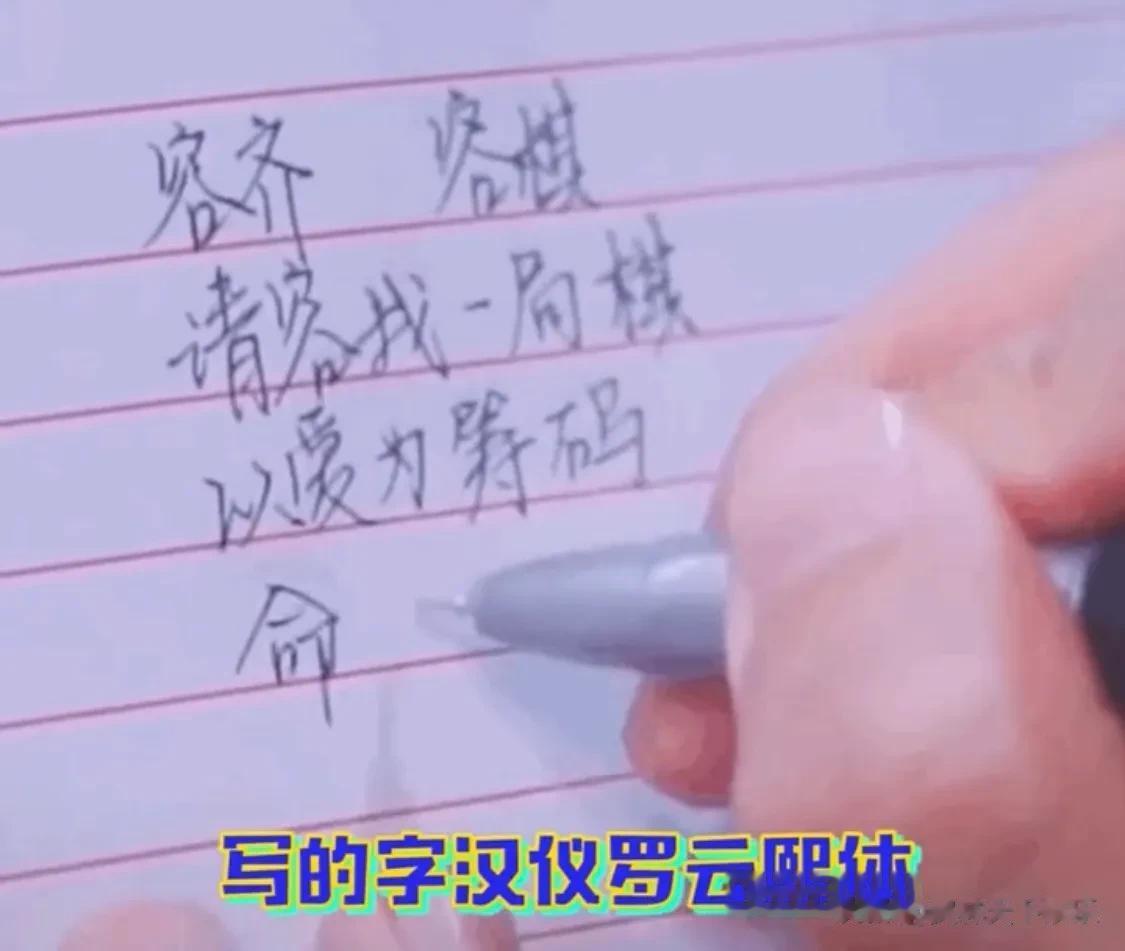 容齐 容棋
请容我一局棋
以爱为筹码
命
写的字汉仪罗云熙体